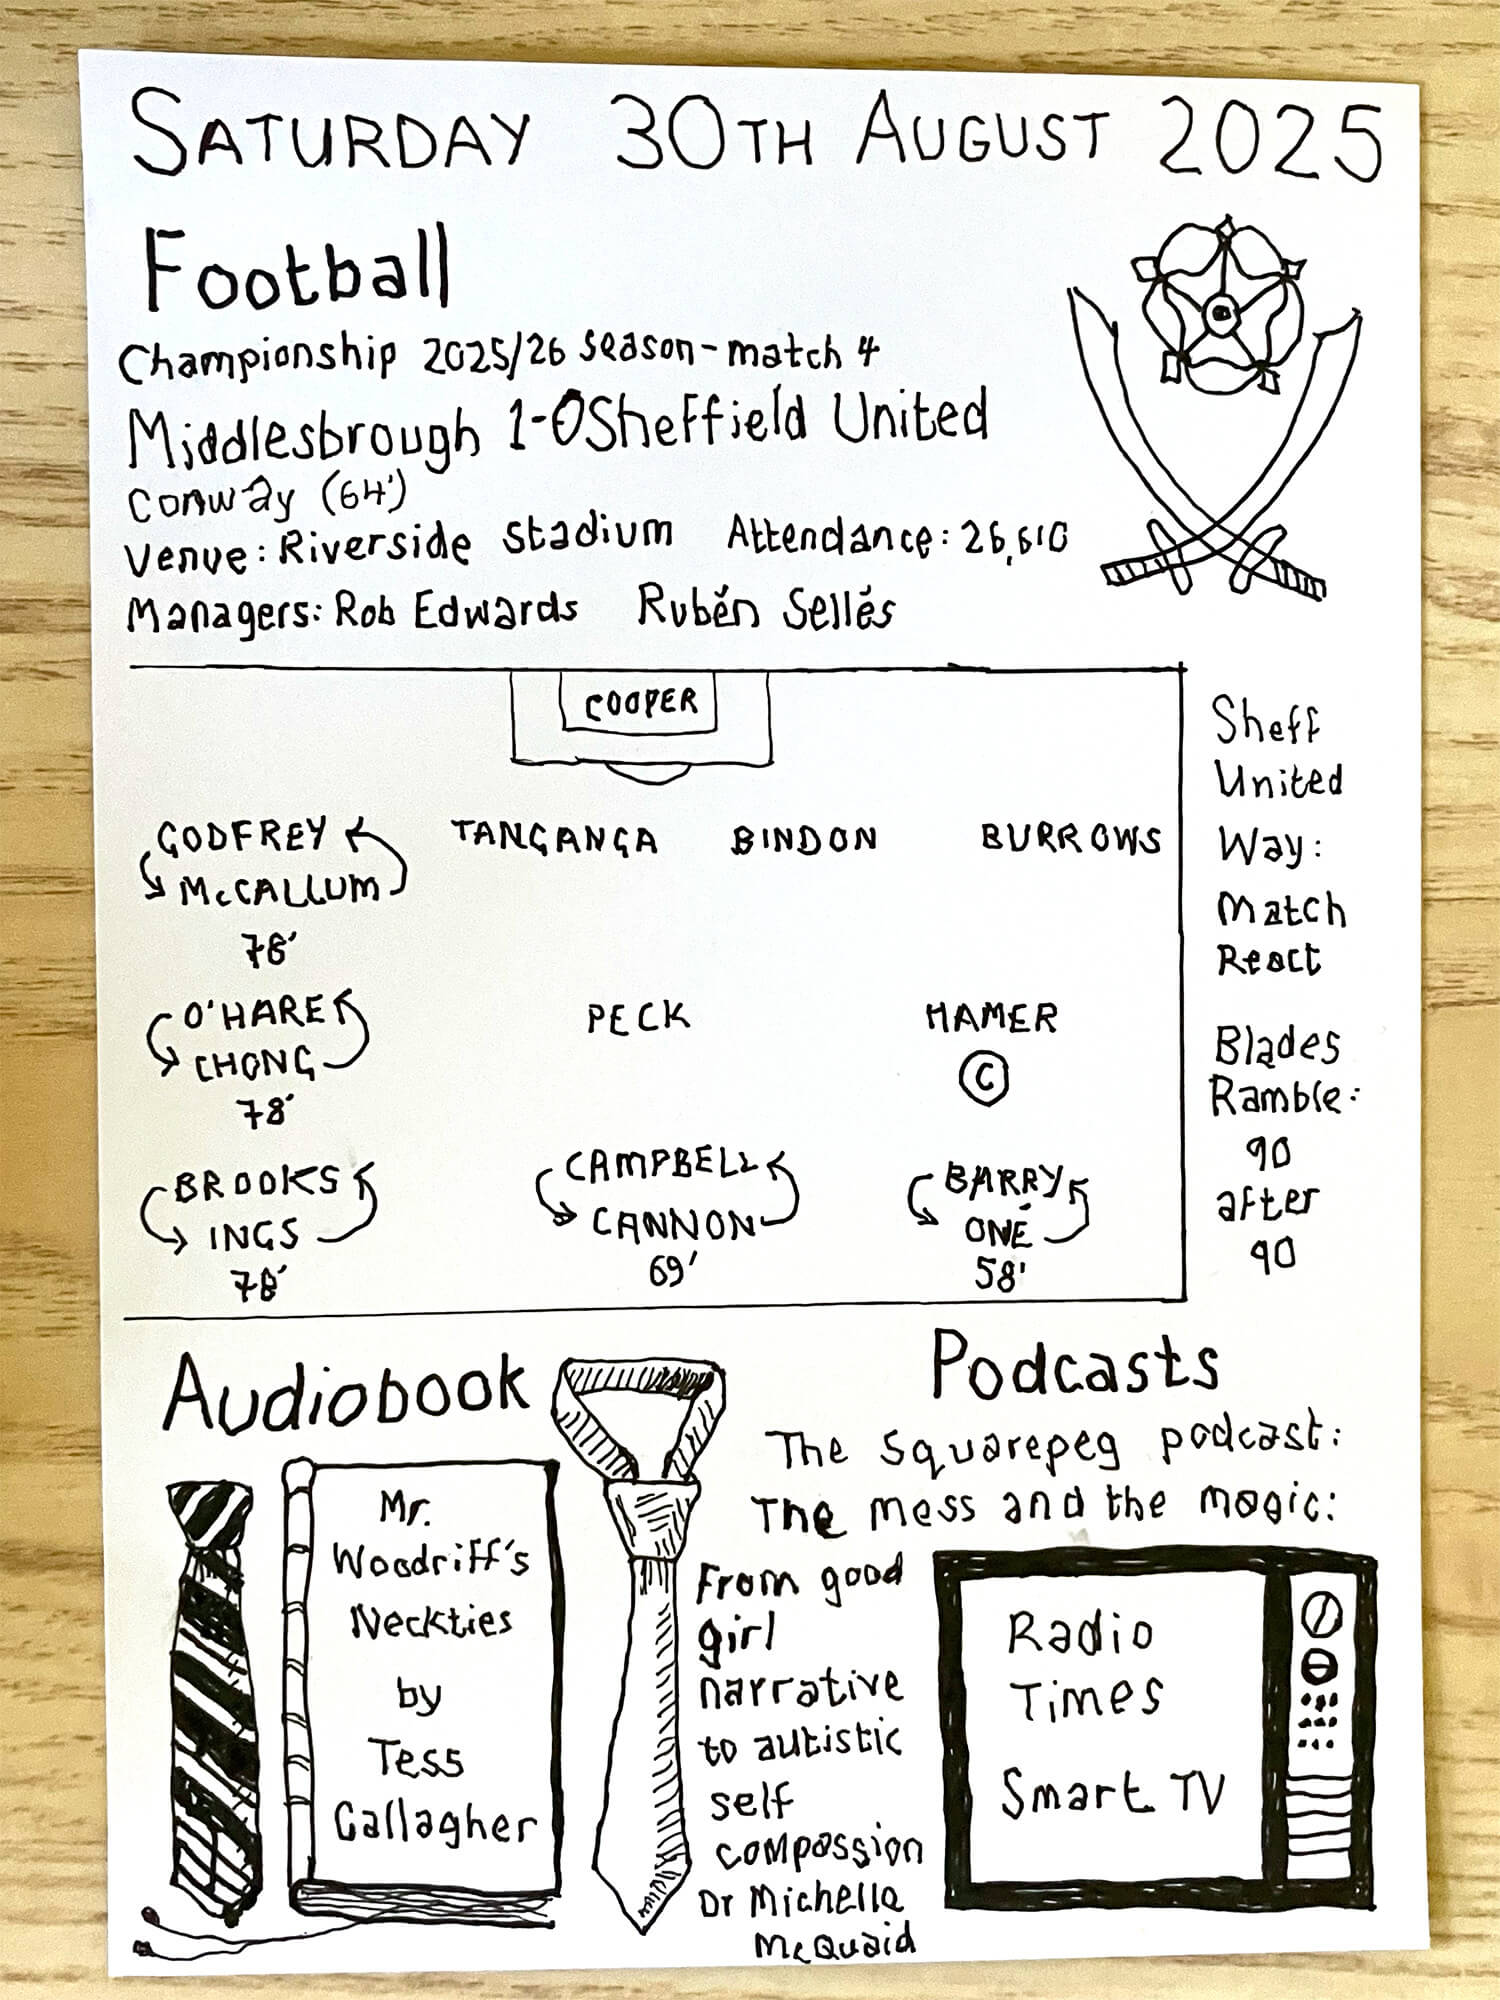 SATURDAY 30TH AUGUST 2025
Football
Championship 2025/26 season - match 4
Middlesbrough 1-0 Sheffield United
Conway (64')
Venue: Riverside Stadium Attendance: 26,610
Managers: Rob Edwards Rubén Sellés
COOPER
GODFREY TANGANGA BINDON BURROWS
McCALLUM
78'
O'HARE PECK HAMER
CHONG C
78'
BROOKS CAMPBELL BARRY
INGS CANNON ONÉ
78' 69' 58'
Sheff
United
Way:
Match
React
Blades
Ramble:
90
after
90
Audiobook
Mr.
Woodriff's
Neckties
by
Tess
Gallagher
Podcasts
The Squarepeg podcast:
The mess and the magic:
From good
girl
narrative
to autistic
self
compassion
Dr Michelle
McQuaid
Radio
Times
Smart TV